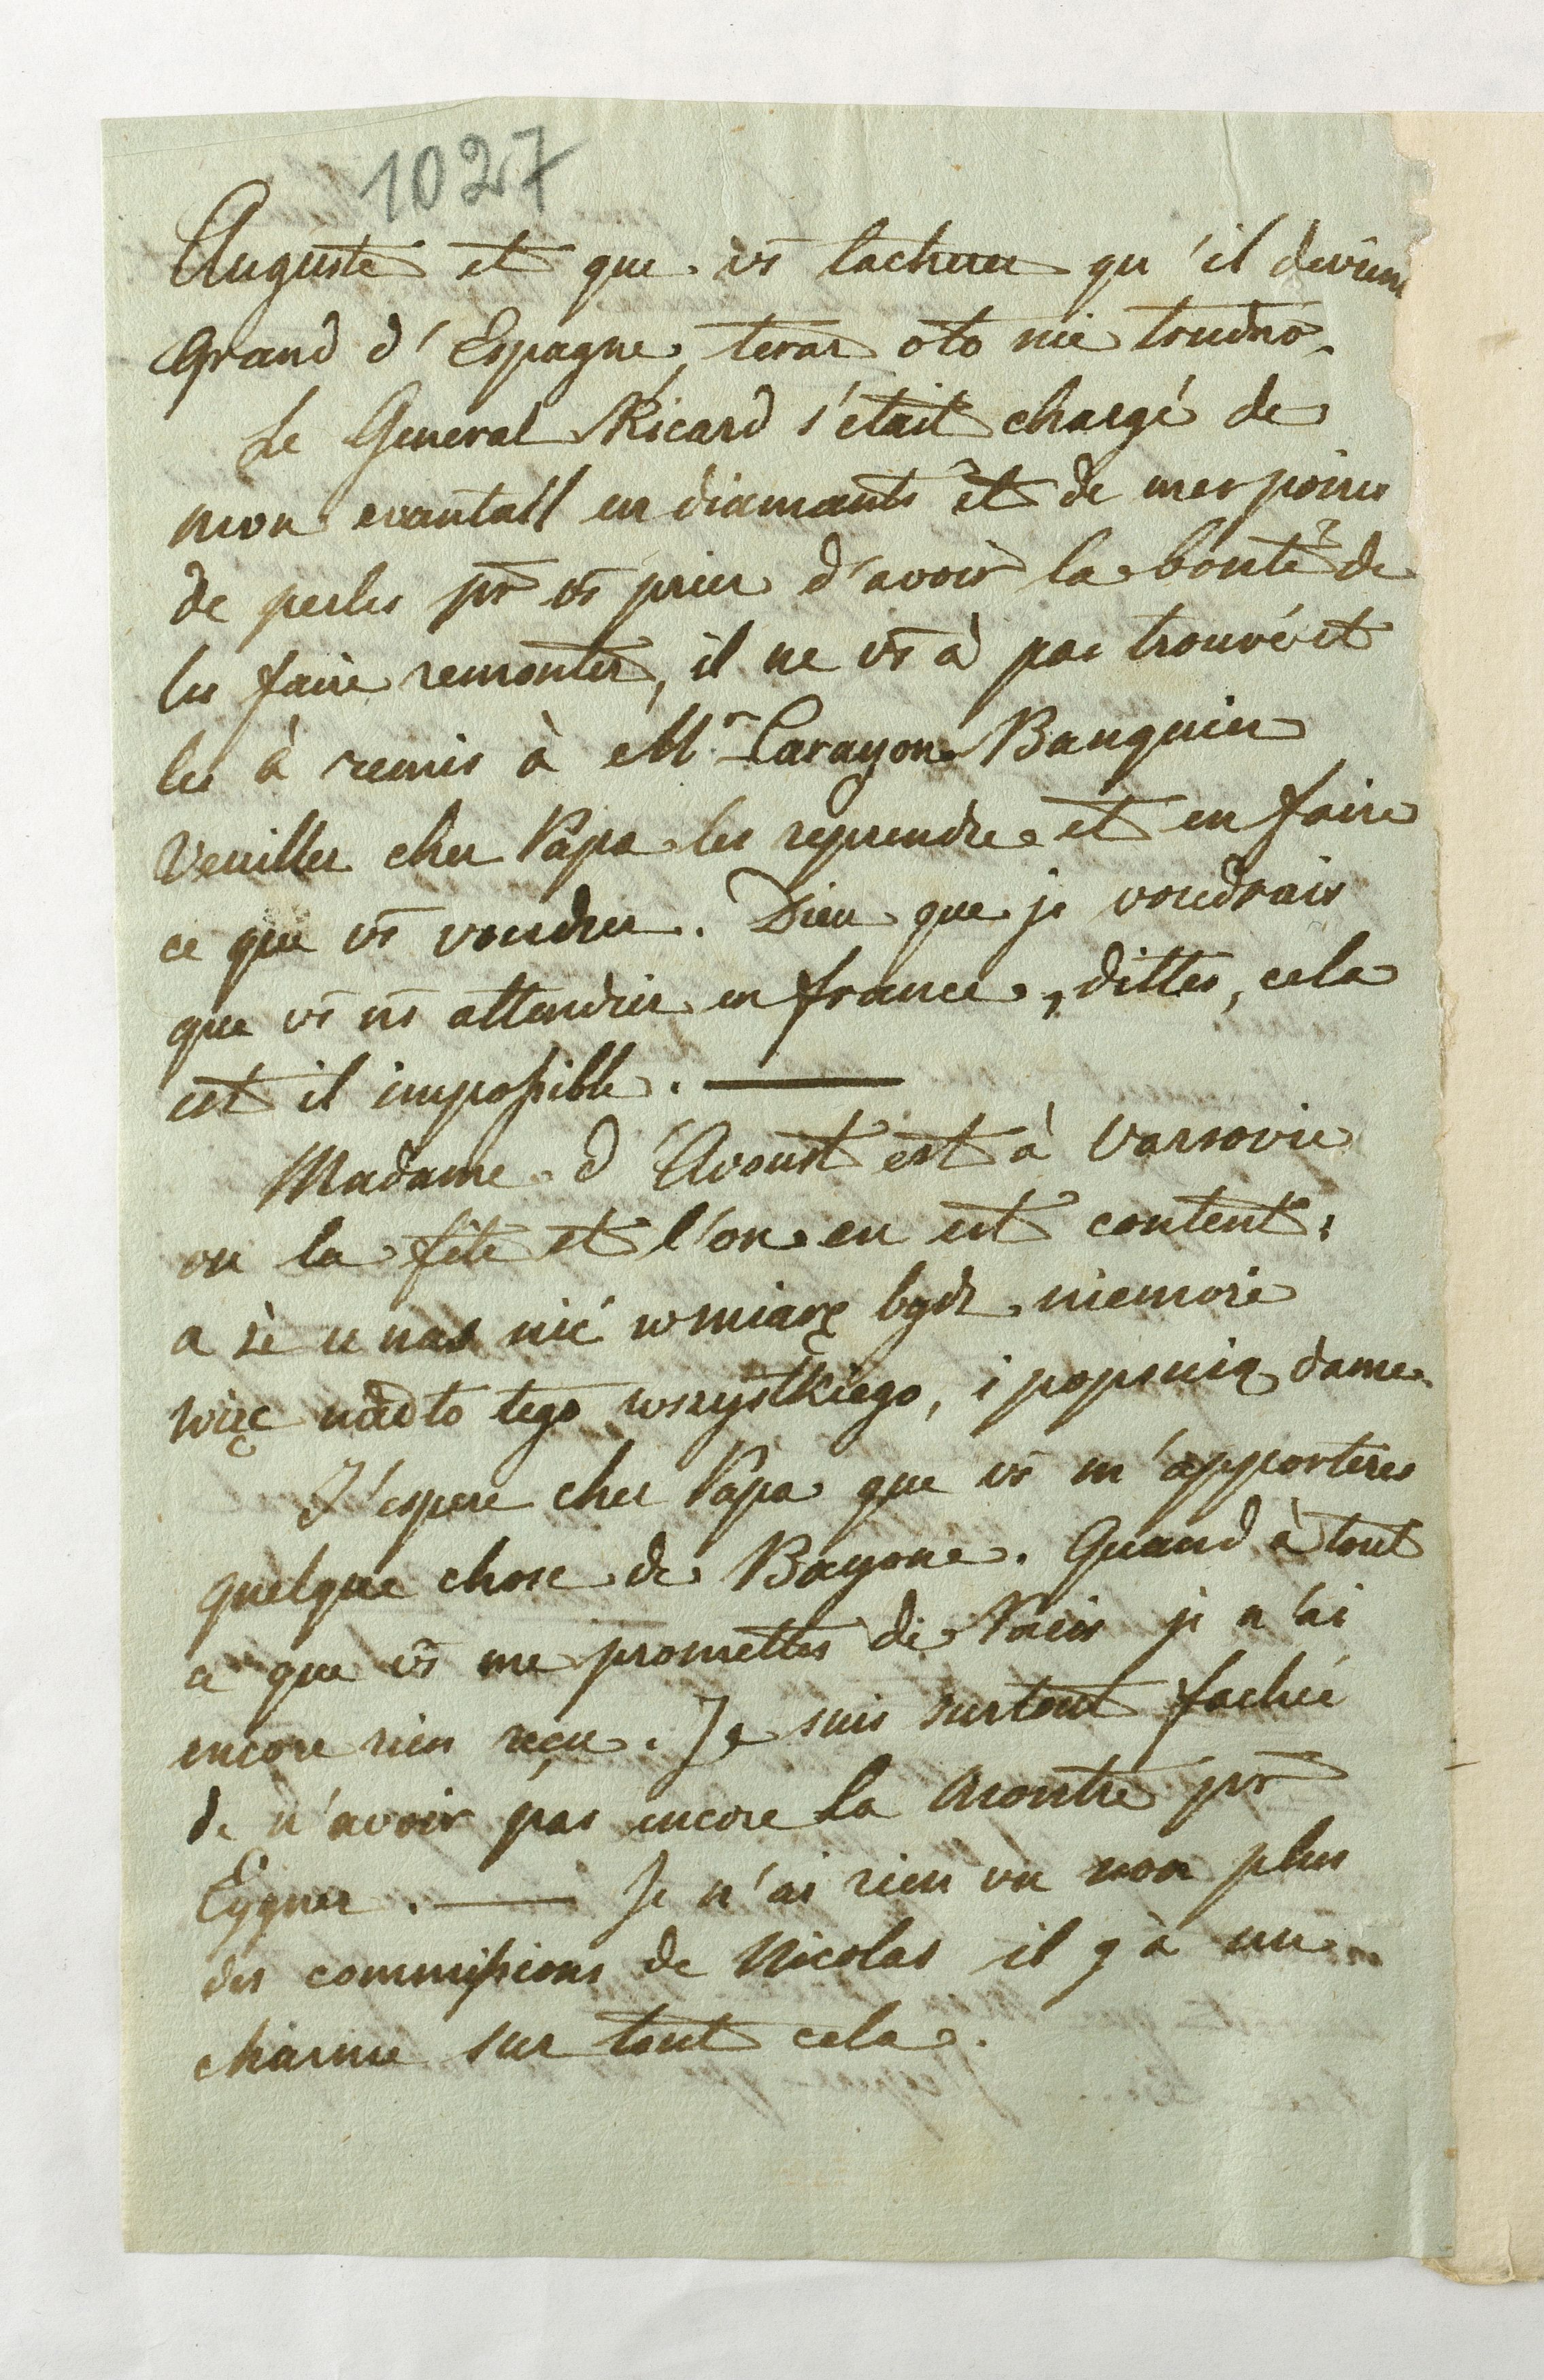 1027
Auguste et que vs tacherer qu'il devien
Grand d'Espagne, teraz oto nie trudno.
Le General Ricard s'etait chargé de
mon evantall en diamants et de mes poires
de perles pr vs prier d'avoir la bonté de
les faire remonter, il ne vs à pas trouvé et
les à remis à Mr Larayon Banquier
Veuiller cher Papa les reprendre et en faire
ce que vs voudrer. Dieu que je voudrais
que vs ns attendier en france, dittes, cela
est il impossible. —
Madame d'Avoust est à Varsovie
on la fête et l'on en est content;
a że u nas nić w miarę bydz niemoże
więc nadto tego wszystkiego, i popsuią dame.
J'espere cher Papa que vs m'apporteres
quelque chose de Bayone. Quand à tout
ce que vs me promettes de Paris je n'ai
encore rien reçu. Je suis surtout fachée
de n'avoir pas encore la Montre pr
Eygner. — Je n'ai rien vu non plus
des commissions de Nicolas il y à un
charme sur tout cela.